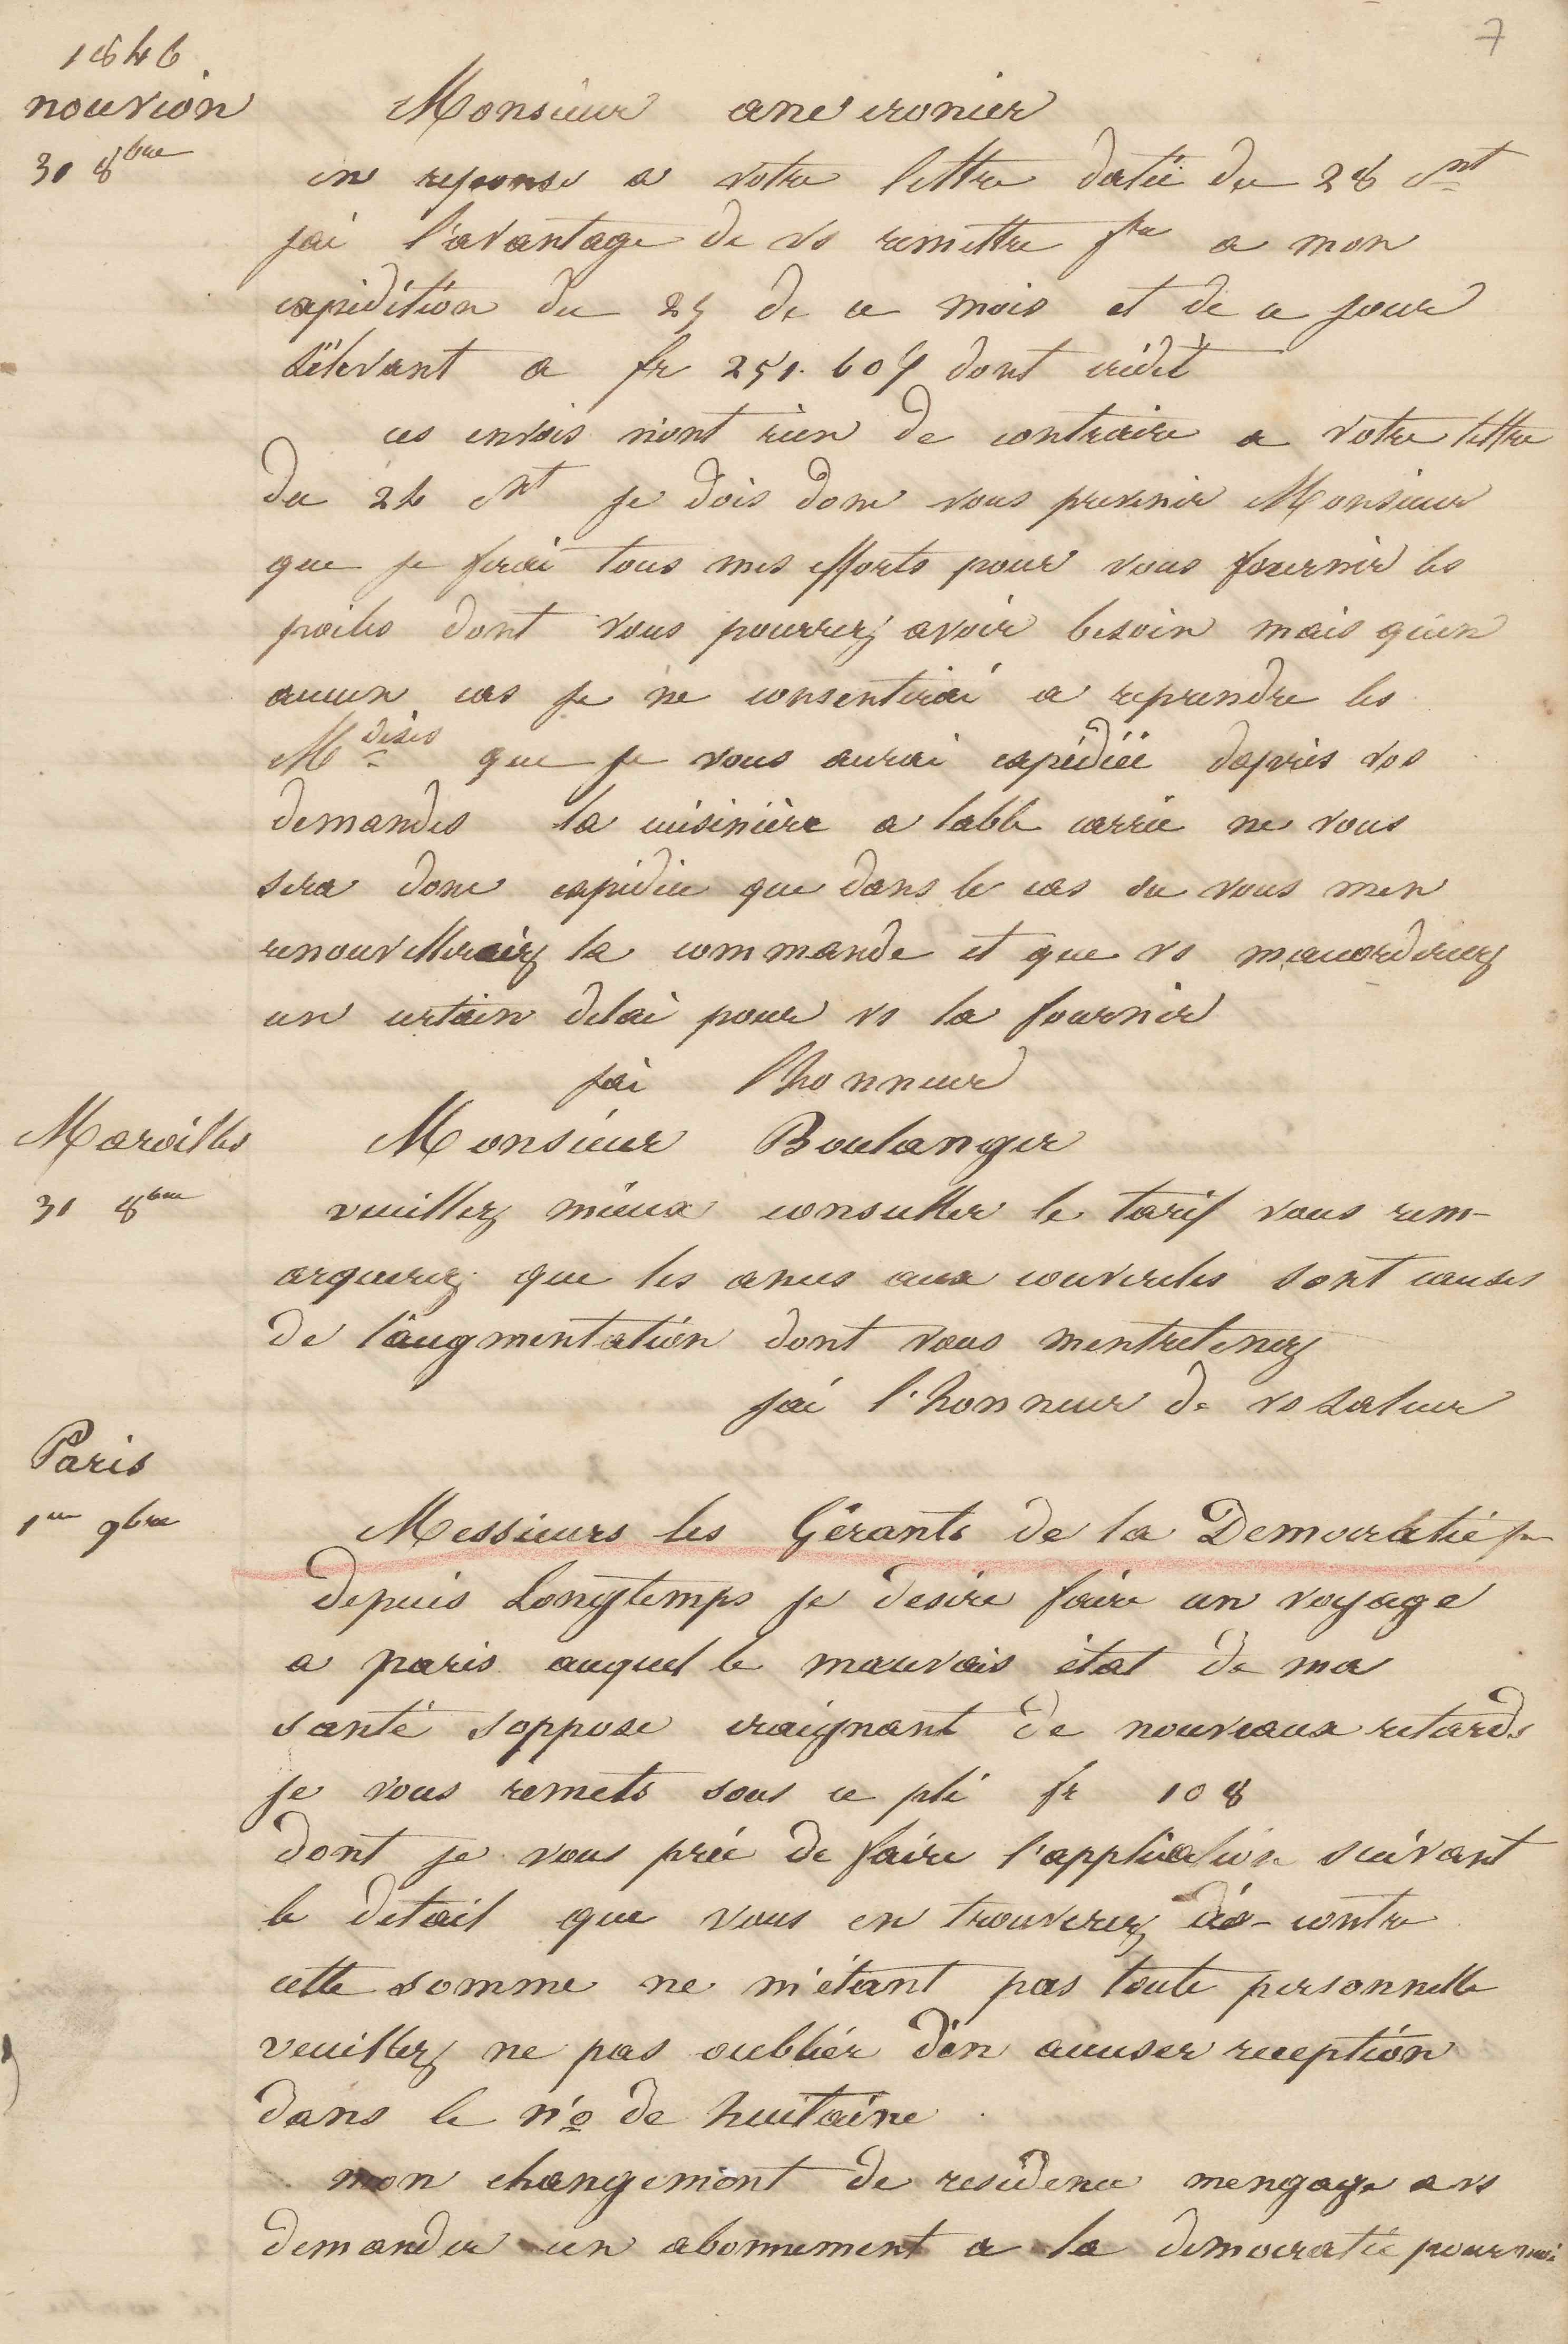 7
1846
nouvion
30 8bre
Monsieur
en reponse a votre lettre datée du 28 ct
jai l'avantage de vs remettre fre a mon
expédition du 25 de ce mois et de ce jour
s'élevant a fr 251.60 dont crédit
ces envois n'ont rien de contraire a votre lettre
du 24 ct je dois donc vous prevenir Monsieur
que je ferai tous mes efforts pour vous fournir les
poëles dont vous pourrez avoir besoin mais qu'en
aucun cas je ne consentirai a reprendre les
Mdises que je vous aurai expédiée dapres vos
demandes la cuisinière a table carrée ne vous
sera donc expédiée que dans le cas ou vous men
renouvelleraiez la commande et que vs maccorderiez
un certain delai pour vs la fournir
jai l'honneur
Maroilles
31 8bre
Monsieur Boulanger
veuillez mieux consulter le tarif vous rem-
arquerez que les anses aux couvercles sont causes
de l'augmentation dont vous mentretenez
jai l'honneur de vs saluer
Paris
1er 9bre
Messieurs les Gérants de la Democratie pac
depuis Longtemps je desire faire un voyage
a paris auquel le mauvais état de ma
santé s'oppose craignant de nouveaux retards
je vous remets sous ce pli fr 108
dont je vous prie de faire l'application suivant
le detail que vous en trouverez ci-contre
cette somme ne m'étant pas toute personnelle
veuillez ne pas oublier d'en accuser reception
dans le no de huitaine
mon changement de residence mengage a vs
demander un abonnement a la democratie pour moi